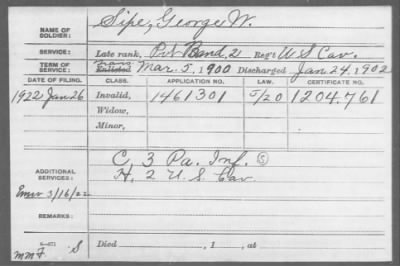 NAME OF SOLDIER: Sipe, George W.
SERVICE: Late rank, Pvt Band, 2 Reg't U S Cav.
TERM OF SERVICE: Enlisted Mar. 5, 1900 Discharged Jan 24, 1902
DATE OF FILING. CLASS. APPLICATION NO. LAW. CERTIFICATE NO.
1922 Jan 26 Invalid, 1461301 5/20 1204,761
Widow,
Minor,
C, 3 Pa. Inf. S
ADDITIONAL SERVICES: H, 2 U. S. Cav
3/16/22
REMARKS:
Died , 1 , at